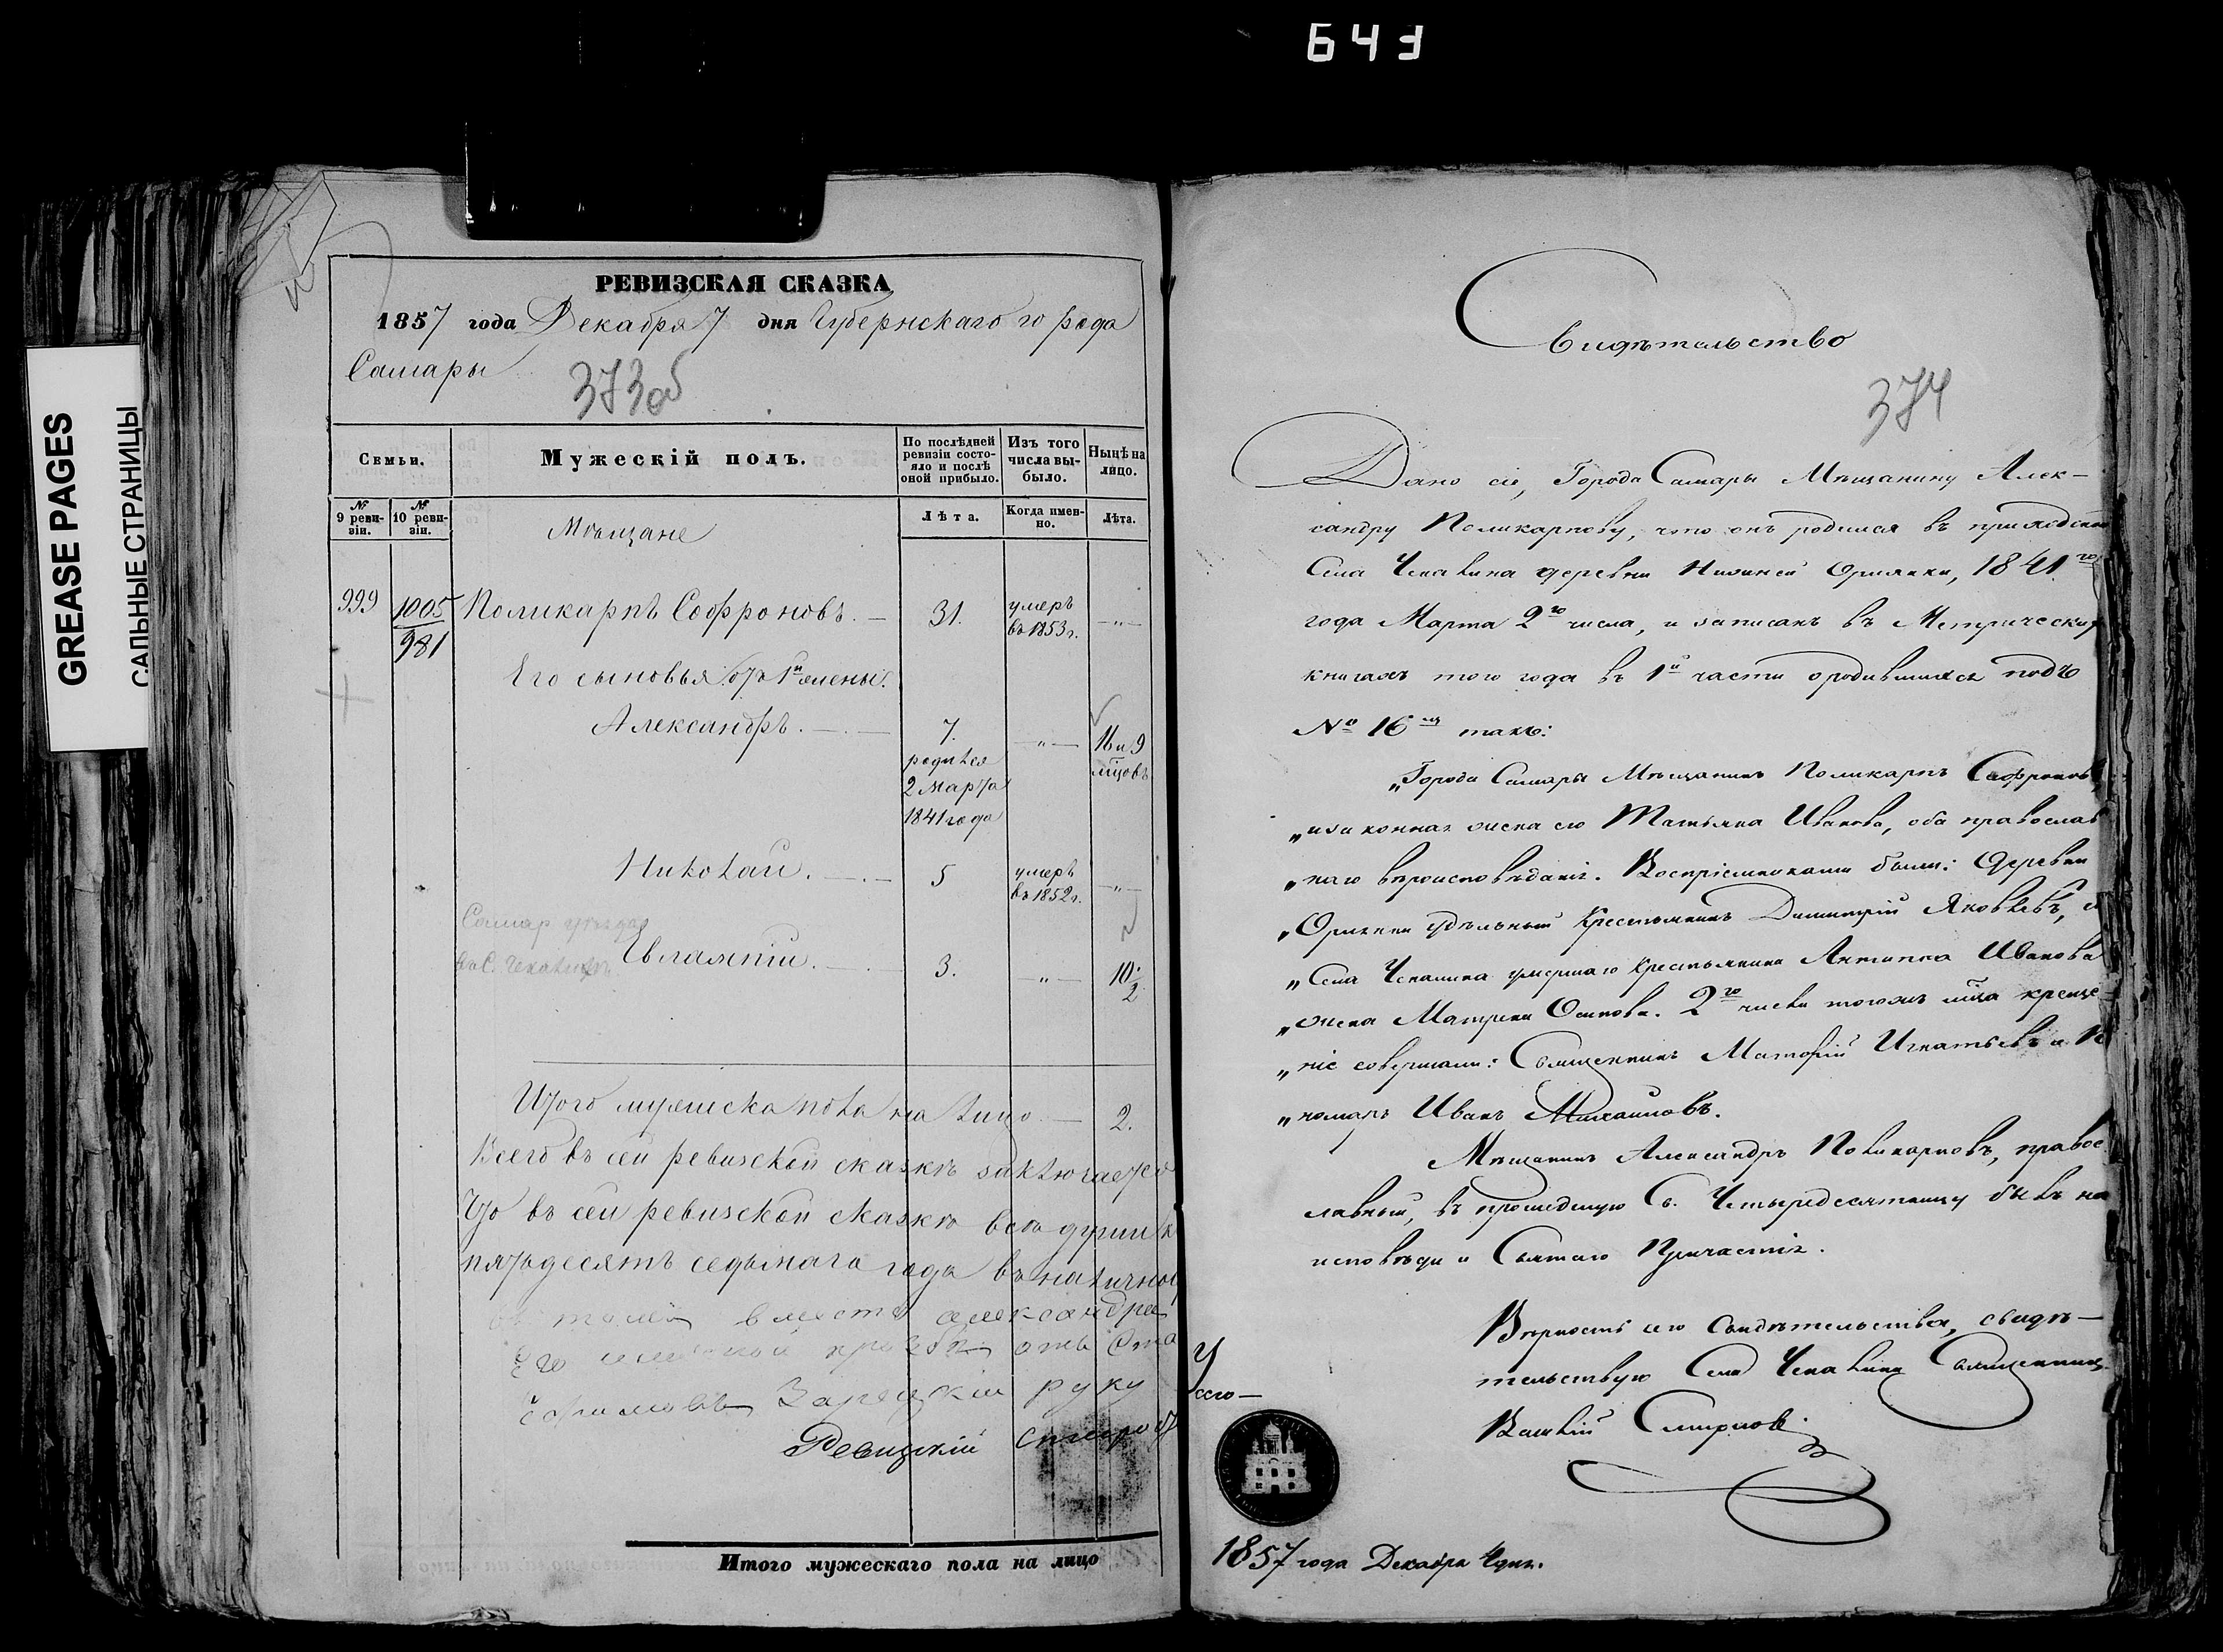 643
GREASE PAGES
САЛЬНЫЕ СТРАНИЦЫ
РЕВИЗСКАЯ СКАЗКА
1857 года Декабря 7 дня Губернскаго города
Самары
373об
Семьи.
Мужескій полъ.
По послѣдней ревизіи состояло и послѣ оной прибыло.
Изъ того числа выбыло.
Нынѣ на лицо.
№ 9 ревизіи.
№ 10 ревизіи.
Мѣщане
Лѣта.
Когда именно.
Лѣта.
999 1005/981 Поликарпъ Софроновъ. 31. умеръ въ 1853 г. —"—
Его сыновья отъ 1й жены.
Александръ. 7. —"— 16 и 9 мцовъ
родился
2 марта
1841 года
Николай. 5 умеръ въ 1852 г. —"—
Самар уезда
въ С. Чекалинѣ
Евлампій. 3. —"— 10 1/2
Итого мужеска пола на лицо — 2.
Всего въ сей ревизской сказкѣ заключается
Что въ сей ревизской сказкѣ все души
пятьдесятъ седьмаго года въ наличнос
вместо александра
Его
Зарецкій руку
Ревицкій
Итого мужескаго пола на лицо
Свидѣтельство
374
Дано сіе, Города Самары Мѣщанину Алек-
сандру Поликарпову, что онъ родился въ приходѣ
Села Чекалина деревни Нижней Орлянки, 1841го
года Марта 2го числа, и записанъ въ Метрическ
книгахъ того года въ 1й части о родившихся подъ
№ 16мъ такъ:
„Города Самары Мѣщанинъ Поликарпъ Софронов
„и законная жена его Татьяна Иванова, оба православ
„наго вѣроисповѣданія. Воспріемниками были: деревни
„Орлянки удѣльный Крестьянинъ Димитрій Яковлевъ, и
„Села Чекалина умершаго Крестьянина Антипа Иванова
„жена Матрена Осипова. 2го числа тогожъ мца креще-
„ніе совершали: Священникъ Матфій Игнатьевъ и По
„номарь Иванъ Михайловъ.
Мѣщанинъ Александръ Поликарповъ, право
славный, въ прошедшую Св. Четыредесятницу былъ на
исповѣди и Святаго Причастія.
Вѣрность сего Свидѣтельства, свидѣ-
тельствую Села Чекалина Священник
Василій Смирнов
1857 года Декабря 4 дня.